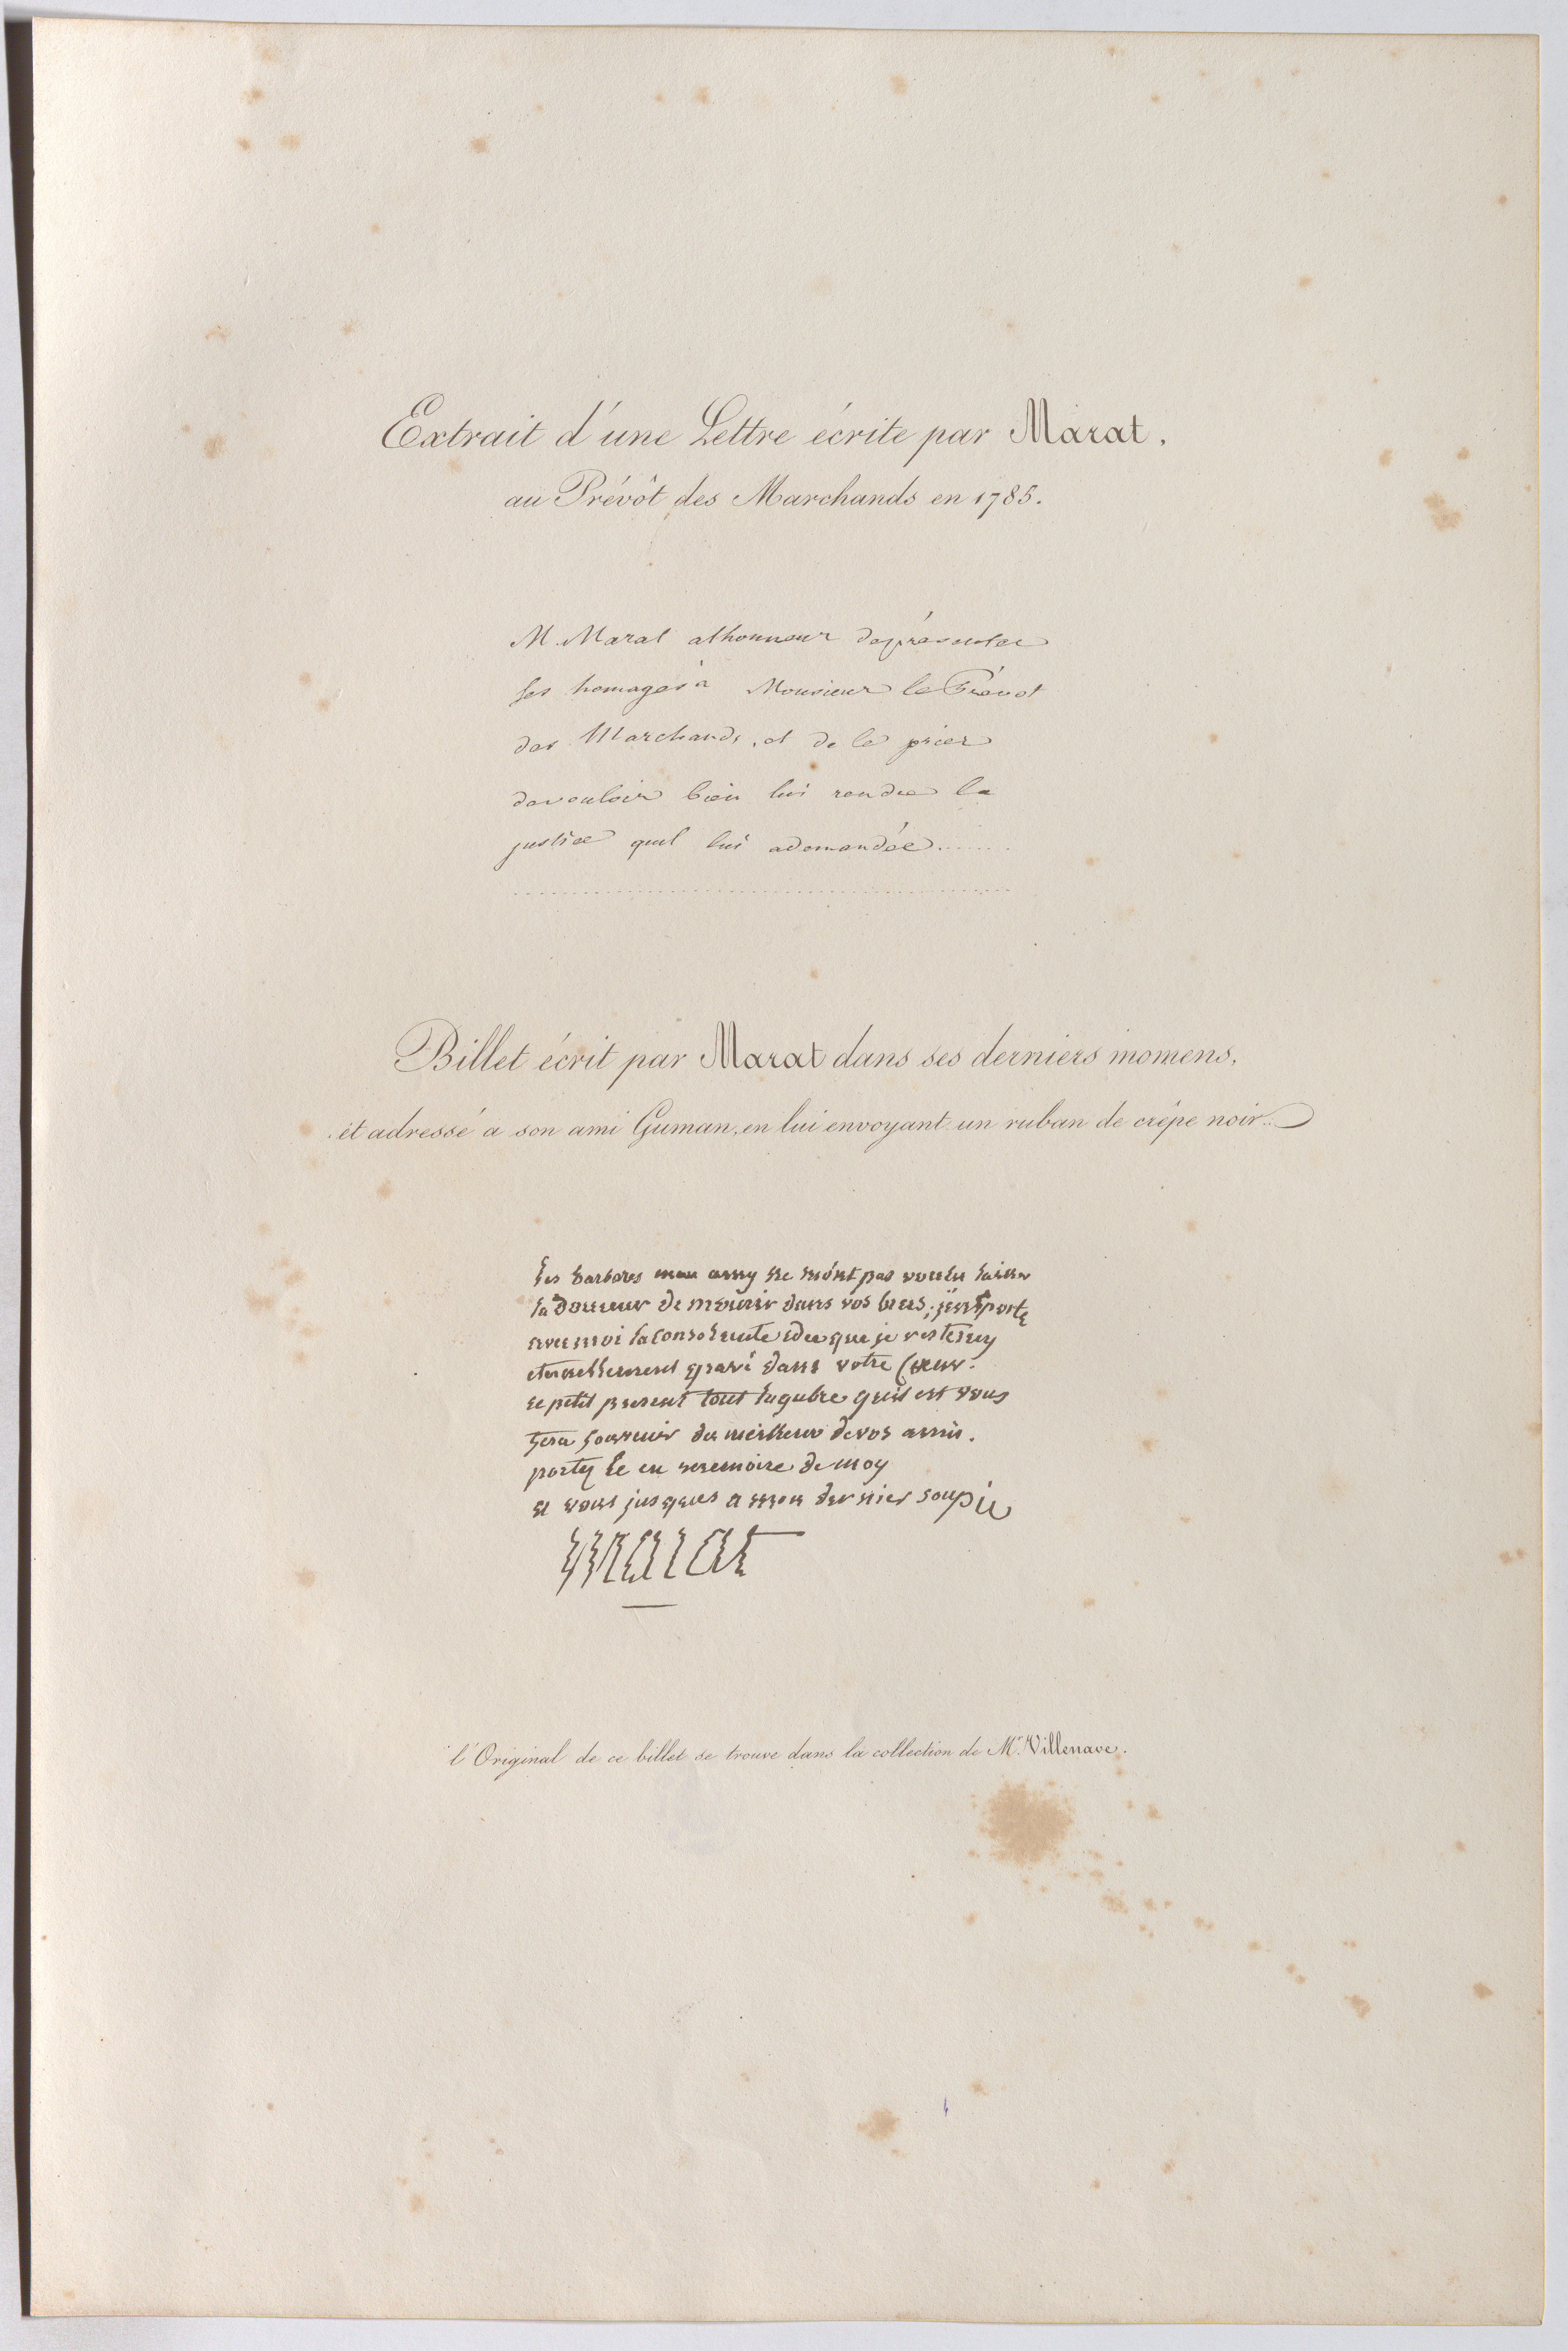 Extrait d'une Lettre écrite par Marat,
au Prévôt des Marchands en 1785.
M. Marat alhonneur depresenter
ses homages à Monsieur le Prévot
des Marchands, et de le prier
devouloir bien lui rendre la
justice quil lui ademandée.......
Billet écrit par Marat dans ses derniers momens,
et adressé à son ami Guman, en lui envoyant un ruban de crêpe noir.
les barbares mon amy ne m'ont pas voulu laisser
la douceur de mourir dans vos bras; j'emporte
avec moi la consolante idée que je resteray
eternellement gravé dans votre Cœur.
ce petit present tout lugubre quil est vous
fera souvenir du meilleur de vos amis.
portez le en memoire de moy
a vous jusques a mon dernier soupir
marat
l'Original de ce billet se trouve dans la collection de Mr. Villenave.